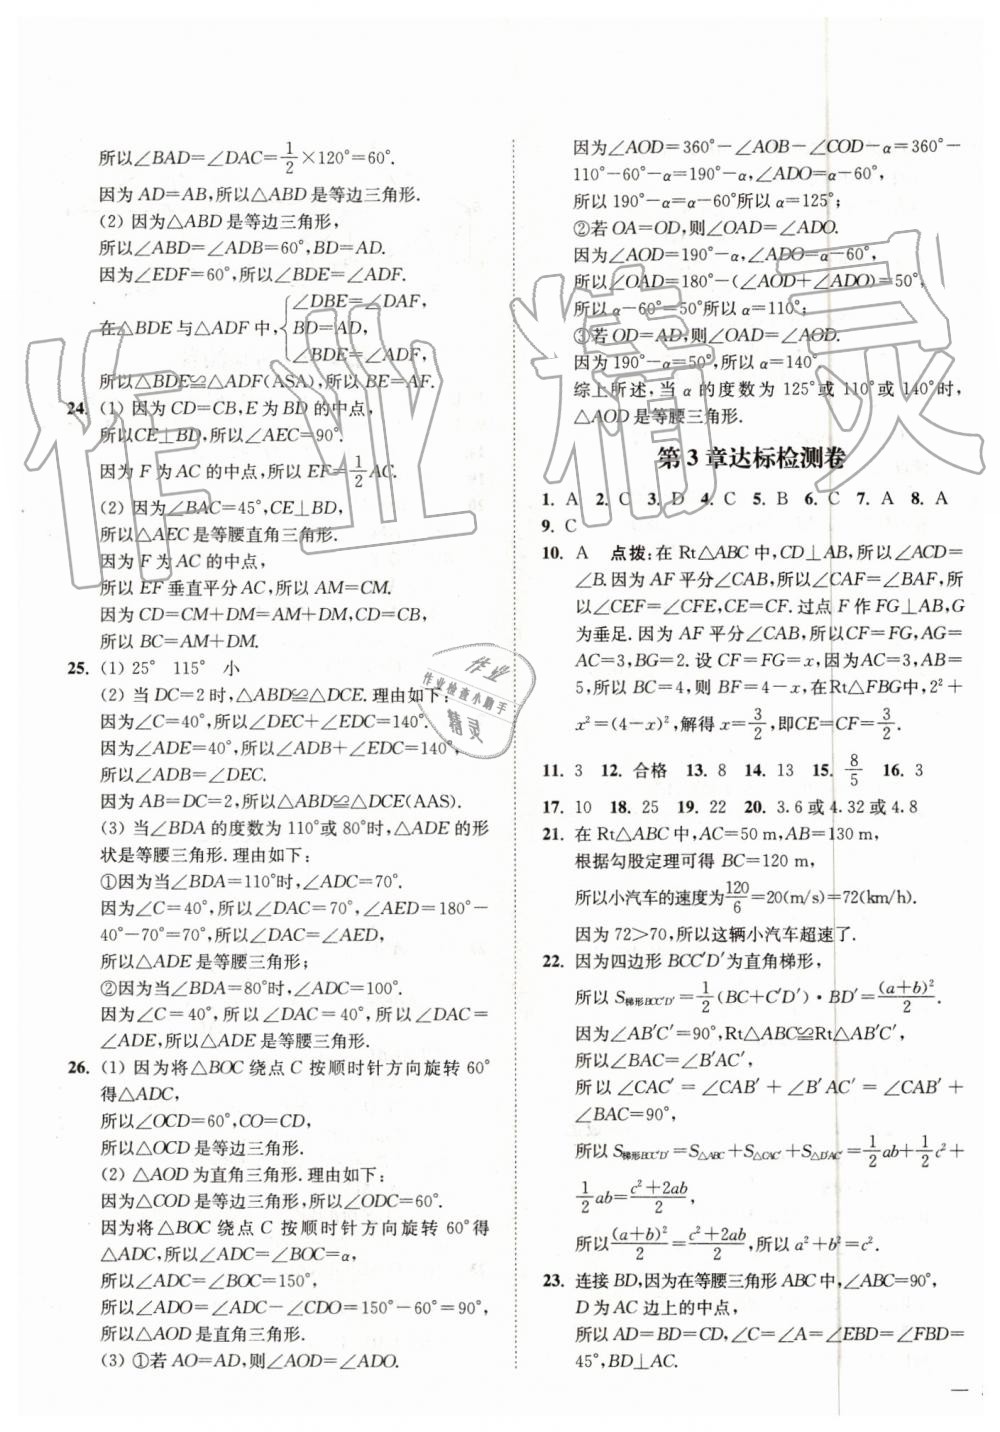 所以∠BAD=∠DAC=1/2×120°=60°.
因为 AD=AB,所以△ABD 是等边三角形.
(2) 因为△ABD 是等边三角形,
所以∠ABD=∠ADB=60°,BD=AD.
因为∠EDF=60°,所以∠BDE=∠ADF.
在△BDE 与△ADF 中,{∠DBE=∠DAF,
BD=AD,
∠BDE=∠ADF,
所以△BDE≌△ADF(ASA),所以 BE=AF.
24. (1) 因为 CD=CB,E 为 BD 的中点,
所以CE⊥BD,所以∠AEC=90°.
因为 F 为 AC 的中点,所以 EF=1/2AC.
(2) 因为∠BAC=45°,CE⊥BD,
所以△AEC 是等腰直角三角形.
因为 F 为 AC 的中点,
所以 EF 垂直平分 AC,所以 AM=CM.
因为 CD=CM+DM=AM+DM,CD=CB,
所以 BC=AM+DM.
25. (1) 25° 115° 小
(2) 当 DC=2 时,△ABD≌△DCE.理由如下:
因为∠C=40°,所以∠DEC+∠EDC=140°.
因为∠ADE=40°,所以∠ADB+∠EDC=140°,
所以∠ADB=∠DEC.
因为 AB=DC=2,所以△ABD≌△DCE(AAS).
(3) 当∠BDA 的度数为 110°或 80°时,△ADE 的形
状是等腰三角形.理由如下:
①因为当∠BDA=110°时,∠ADC=70°.
因为∠C=40°,所以∠DAC=70°,∠AED=180°-
40°-70°=70°,所以∠DAC=∠AED,
所以△ADE 是等腰三角形;
②因为当∠BDA=80°时,∠ADC=100°.
因为∠C=40°,所以∠DAC=40°,所以∠DAC=
∠ADE,所以△ADE 是等腰三角形.
26. (1) 因为将△BOC 绕点 C 按顺时针方向旋转 60°
得△ADC,
所以∠OCD=60°,CO=CD,
所以△OCD 是等边三角形.
(2) △AOD 为直角三角形.理由如下:
因为△COD 是等边三角形,所以∠ODC=60°.
因为将△BOC 绕点 C 按顺时针方向旋转 60°得
△ADC,所以∠ADC=∠BOC=α,
所以∠ADC=∠BOC=150°,
所以∠ADO=∠ADC-∠CDO=150°-60°=90°,
所以△AOD 是直角三角形.
(3) ①若 AO=AD,则∠AOD=∠ADO.
因为∠AOD=360°-∠AOB-∠COD-α=360°-
110°-60°-α=190°-α,∠ADO=α-60°,
所以 190°-α=α-60°所以 α=125°;
②若 OA=OD,则∠OAD=∠ADO.
因为∠AOD=190°-α,∠ADO=α-60°,
所以∠OAD=180°-(∠AOD+∠ADO)=50°,
所以 α-60°=50°所以 α=110°;
③若 OD=AD,则∠OAD=∠AOD.
因为 190°-α=50°,所以 α=140°
综上所述,当 α 的度数为 125°或 110°或 140°时,
△AOD 是等腰三角形.
第 3 章达标检测卷
1. A 2. C 3. D 4. C 5. B 6. C 7. A 8. A
9. C
10. A 点拨:在 Rt△ABC 中,CD⊥AB,所以∠ACD=
∠B.因为 AF 平分∠CAB,所以∠CAF=∠BAF,所
以∠CEF=∠CFE,CE=CF.过点 F 作 FG⊥AB,G
为垂足.因为 AF 平分∠CAB,所以CF=FG,AG=
AC=3,BG=2.设 CF=FG=x,因为AC=3,AB=
5,所以 BC=4,则 BF=4-x,在Rt△FBG中,2²+
x²=(4-x)²,解得 x=3/2,即CE=CF=3/2.
11. 3 12. 合格 13. 8 14. 13 15. 8/5 16. 3
17. 10 18. 25 19. 22 20. 3.6 或 4.32 或 4.8
21. 在 Rt△ABC 中,AC=50 m,AB=130 m,
根据勾股定理可得 BC=120 m,
所以小汽车的速度为120/6=20(m/s)=72(km/h).
因为 72>70,所以这辆小汽车超速了.
22. 因为四边形 BCC′D′为直角梯形,
所以 S梯形BCC′D′=1/2(BC+C′D′)·BD′=(a+b)²/2.
因为∠AB′C′=90°,Rt△ABC≌Rt△AB′C′,
所以∠BAC=∠B′AC′,
所以 ∠CAC′ = ∠CAB′ + ∠B′AC′ = ∠CAB′ +
∠BAC=90°,
所以 S梯形BCC′D′=S△ABC+S△CAC′+S△D′AC′=1/2ab+1/2c²+
1/2ab=(c²+2ab)/2,
所以(a+b)²/2=(c²+2ab)/2,所以 a²+b²=c².
23. 连接 BD,因为在等腰三角形 ABC 中,∠ABC=90°,
D 为 AC 边上的中点,
所以 AD=BD=CD,∠C=∠A=∠EBD=∠FBD=
45°,BD⊥AC.
作业
作业检查小助手
精灵
作业精灵